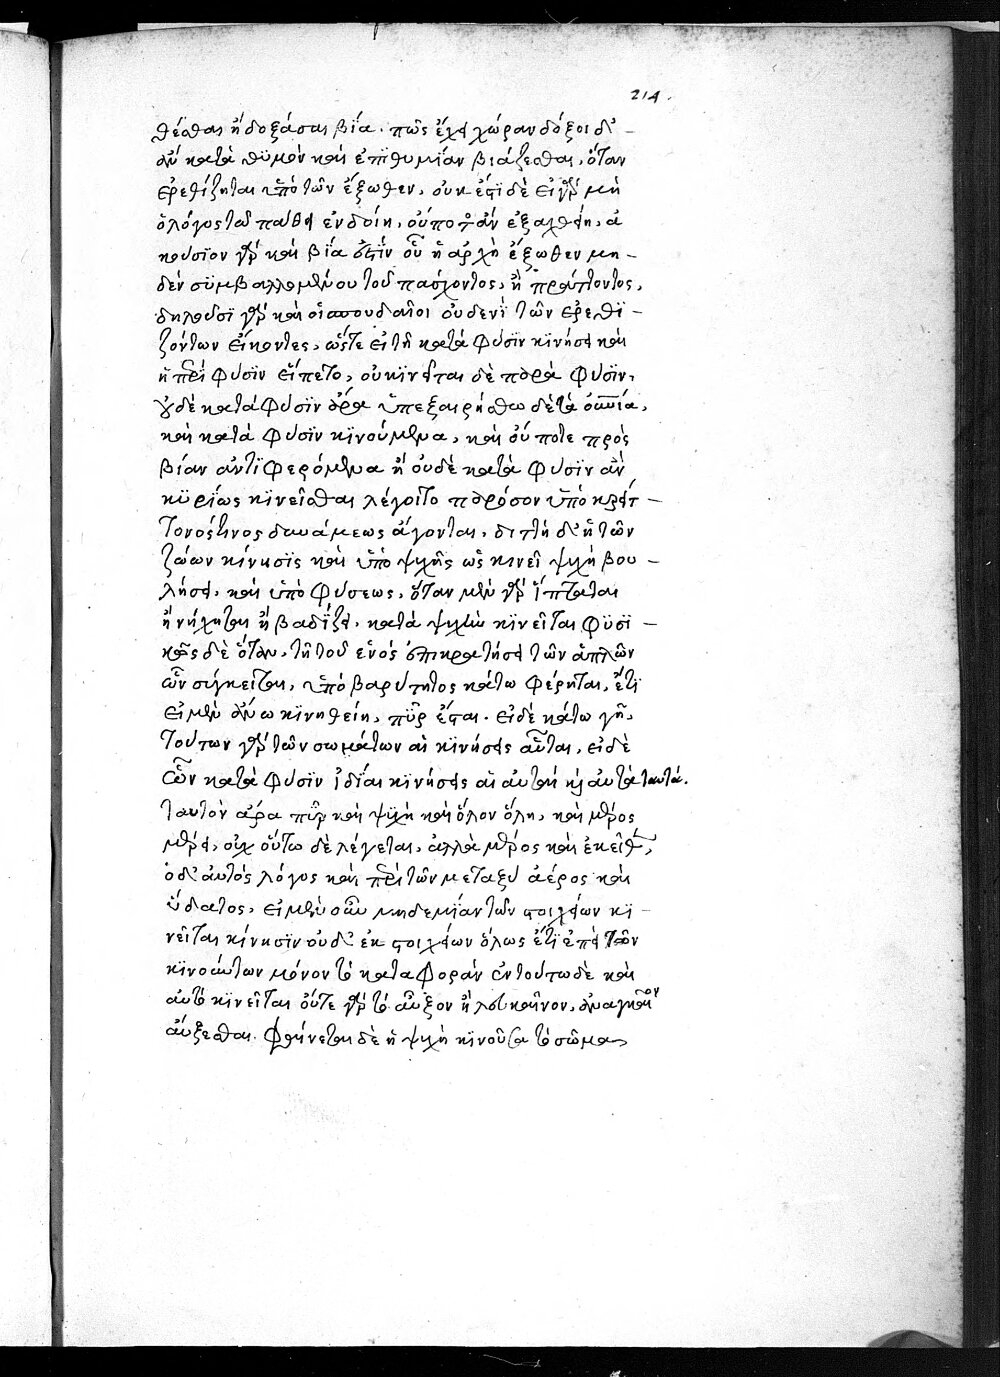 214.
θέσθαι ἢ δοξάσαι βίᾳ. πῶς ἔχει χώραν δόξοι δ' –
ἂν κατὰ θϋμὸν καὶ ἐπϊθυμίαν βιάζεσθαι, ὅταν
ἐρεθίζηται ὑπὸ τῶν ἔξωθεν, οὐκ ἔστϊ δὲ εἰ γὰρ μὴ
ὁ λόγος τῶ πάθει ἐνδοίη, οὔποτ' ἂν ἐξαχθείη, ἀ
κούσϊον γὰρ καὶ βίᾳ ἐστὶν οὗ ἡ ἀρχὴ ἔξωθεν μη –
δὲν σϋμβαλλομένου τοῦ πάσχοντος, ἢ πράττοντος,
δηλοῦσϊ γὰρ καὶ οἱ σπουδαῖοι οὐδενὶ τῶν ἐρεθϊ –
ζόντων εἴκοντες, ὥστε εἰ τῆ κατὰ φύσϊν κϊνήσει καὶ
ἡ παρὰ φύσϊν εἵπετο, οὐ κϊνεῖται δὲ παρὰ φύσϊν,
οὐδὲ κατὰ φύσϊν ἄρα ὑπεξαιρήσθω δὲ τὰ οὐράνϊα,
καὶ κατὰ φύσϊν κϊνούμενα, καὶ οὔποτε πρὸς
βίαν ἀντϊφερόμενα ἢ οὐδὲ κατὰ φύσϊν ἂν
κϋρίως κϊνεῖσθαι λέγοιτο παρόσον ὑπὸ κρείτ –
τονός τινος δυνάμεως ἄγονται, διττὴ δ' ἡ τῶν
ζώων κίνησϊς καὶ ὑπὸ ψυχῆς ὡς κινεῖ ψυχὴ βου –
λήσει, καὶ ὑπὸ φύσεως, ὅταν μὲν γὰρ ἵπταται
ἢ νήχηται ἢ βαδίζει, κατὰ ψυχὴν κϊνεῖται φϋσϊ –
κῶς δὲ ὅταν, τῆ τοῦ ἑνὸς ἐπικρατήσει τῶν ἁπλῶν
ὧν σύγκειται, ὑπὸ βαρύτητος κάτω φέρηται, ἔτϊ
εἰ μὲν ἄνω κϊνηθείη, πῦρ ἔσται. εἰ δὲ κάτω γῆ,
τούτων γὰρ τῶν σωμάτων αἱ κϊνήσεις αὗται, εἰ δὲ
ὧν κατὰ φύσϊν ἰδίαι κϊνήσεις αἱ αὐταὶ κ αὐτὰ ταυτά.
ταυτὸν ἄρα πῦρ καὶ ψϋχὴ καὶ ὅλον ὅλη, καὶ μέρος
μέρει, οὐχ οὕτω δὲ λέγεται, ἀλλὰ μέρος καὶ ἐκεῖθ,
ὁ δ' αὐτὸς λόγος καὶ περὶ τῶν μεταξὺ ἀέρος καὶ
ὕδατος, εἰ μὲν οὖν μηδεμίαν τῶν στοιχείων κϊ –
νεῖται κίνησϊν οὐδ' ἐκ στοιχείων ὅλως ἔτϊ ἐπεὶ τῶν
κϊνούντων μόνον τὸ κατὰ φορὰν ἐν τούτω δὲ καὶ
αὐτὸ κϊνεῖται οὔτε γὰρ τὸ αὖξον ἢ λευκαῖνον, ἀναγκαῖον
αὔξεσθαι. φαίνεται δὲ ἡ ψυχὴ κϊνοῦσα τὸ σῶμα